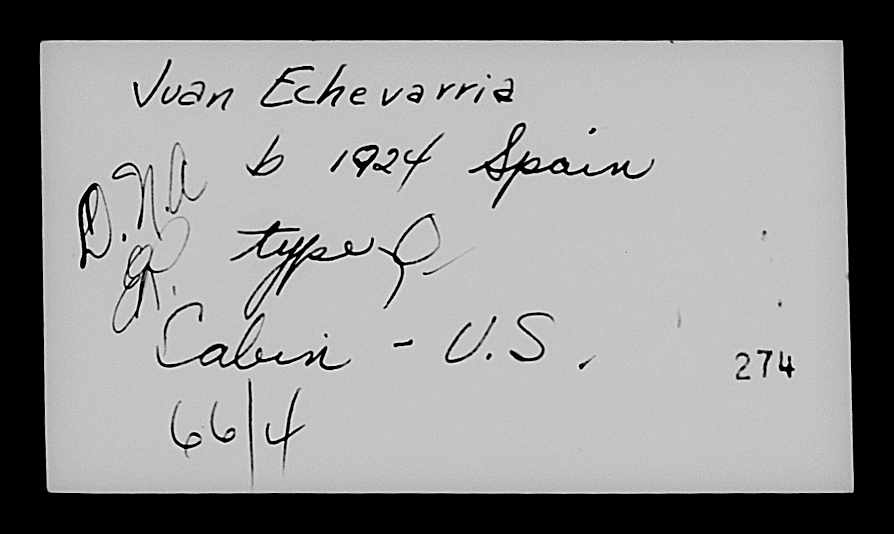 Juan Echevarria
b 1924 Spain
D.N.A
type
Cabin - U.S.
274
66/4